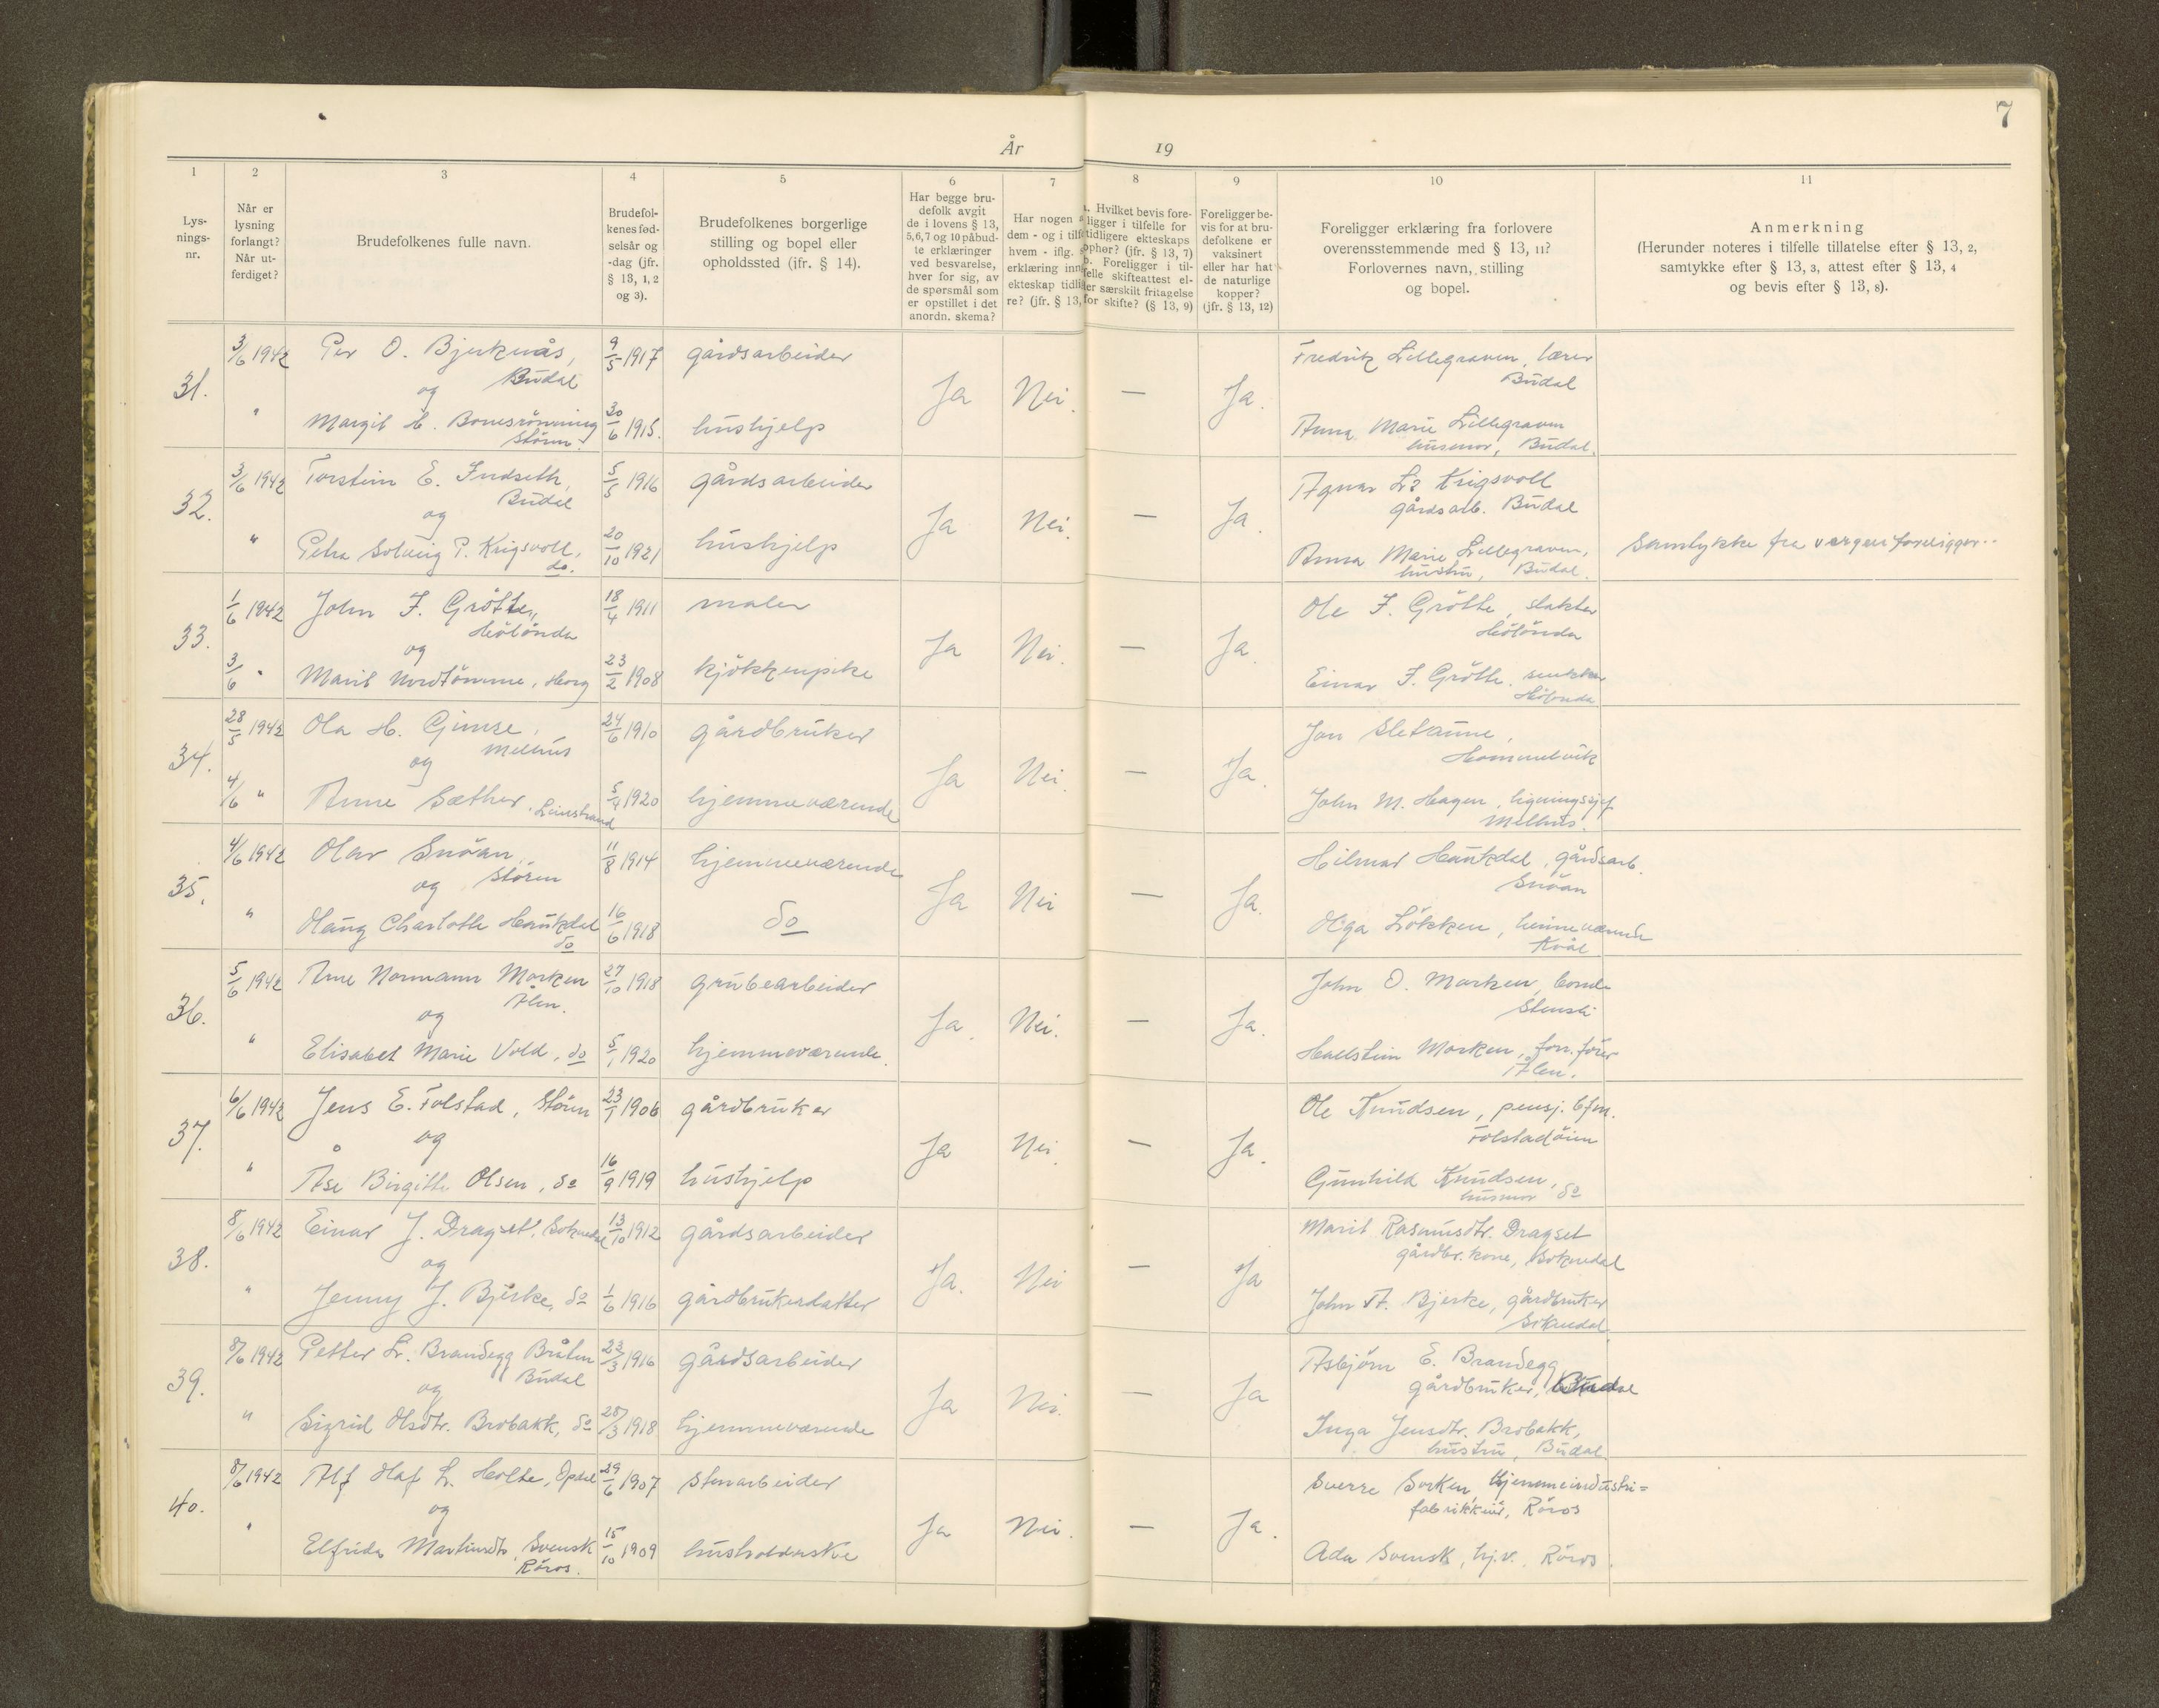 7
År 19
1 2 3 4 5 6 7 8 9 10 11
Lys-
nings-
nr.
Når er
lysning
forlangt?
Når ut-
ferdiget?
Brudefolkenes fulle navn.
Brudefol-
kenes fød-
selsår og
-dag (jfr.
§ 13, 1, 2
og 3).
Brudefolkenes borgerlige
stilling og bopel eller
opholdssted (ifr. § 14).
Har begge bru-
defolk avgit
de i lovens § 13,
5, 6, 7 og 10 påbud-
te erklæringer
ved besvarelse,
hver for sig, av
de spørsmål som
er opstillet i det
anordn. skema?
Har nogen a
dem - og i tilf
hvem - iflg.
erklæring inn
ekteskap tidli
re? (jfr. § 13,
a. Hvilket bevis fore-
ligger i tilfelle for
tidligere ekteskaps
ophør? (jfr. § 13, 7)
b. Foreligger i til-
felle skifteattest el-
ler særskilt fritagelse
for skifte? (§ 13, 9)
Foreligger be-
vis for at bru-
defolkene er
vaksinert
eller har hat
de naturlige
kopper?
(jfr. § 13, 12)
Foreligger erklæring fra forlovere
overensstemmende med § 13, 11?
Forlovernes navn, stilling
og bopel.
Anmerkning
(Herunder noteres i tilfelle tillatelse efter § 13, 2,
samtykke efter § 13, 3, attest efter § 13, 4
og bevis efter § 13, 8).
31.
3/6 1942 Per O. Bjerknås, 9/5 1917 gårdsarbeider
Budal
og
" Margit H. Bonesrönning 30/6 1915. hushjelp
Stören.
Ja Nei. — Ja.
Fredrik Lillegraven, lærer
Budal
Anna Marie Lillegraven
husmor, Budal.
32.
3/6 1942 Torstein E. Indseth, 5/5 1916 gårdsarbeider
Budal
og
" Petra Solveig P. Krigsvoll, 20/10 1921 hushjelp
do.
Ja Nei. — Ja.
Agnar L. Krigsvoll
gårdsarb. Budal
Anna Marie Lillegraven,
hustru, Budal.
Samtykke fra vergen foreligger.
33.
1/6 1942 John F. Grötte, 18/4 1911 maler
Hölonda
og
3/6 " Marit Nordtömme, Horg 23/2 1908 kjökkenpike
Ja Nei. — Ja.
Ole F. Grötte, slakter
Hölonda
Einar F. Grötte, snekker
Hölonda
34.
28/5 1942 Ola H. Gimse, 24/6 1910 gårdbruker
Melhus
og
4/6 " Anne Sæther, Leinstrand 5/4 1920 hjemmeværende
Ja Nei. — Ja.
Jon Sletaune,
Hommelvik
John M. Hagen, ligningssjef
Melhus.
35.
4/6 1942 Olav Snöan, 11/8 1914 hjemmeværende
Stören
og
" Olaug Charlotte Haukdal 16/6 1918 do
do
Ja Nei — Ja.
Hilmar Haukdal, gårdsarb.
Snöan
Olga Lökken, heimeværende
Kvål
36.
5/6 1942 Arne Normann Morken 27/10 1918 grubearbeider
Ålen.
og
" Elisabet Marie Vold, do 5/1 1920 hjemmeværende.
Ja. Nei. — Ja.
John O. Morken, bonde
Stensli
Hallstein Morken, forr.förer
Ålen.
37.
6/6 1942 Jens E. Folstad, Stören 23/1 1906 gårdbruker
og
" Åse Birgitte Olsen, do 16/9 1919 hushjelp
Ja Nei. — Ja.
Ole Knudsen, pensj. bfm.
Folstadöien
Gunhild Knudsen,
husmor do
38.
8/6 1942 Einar J. Dragset, Soknedal 13/10 1912 gårdsarbeider
og
" Jenny J. Bjerke, do 1/6 1916 gårdbrukerdatter
Ja. Nei — Ja
Marit Rasmusdtr. Dragset
gårdbr.kone, Soknedal
John A. Bjerke, gårdbruker
Soknedal.
39.
8/6 1942 Petter L. Brandegg Bråten 23/3 1916 gårdsarbeider
Budal
og
" Sigrid Olsdtr. Brobakk, do 28/3 1918 hjemmeværende
Ja Nei. — Ja
Asbjörn E. Brandegg
gårdbruker, Budal
Inga Jensdtr. Brobakk,
hustru, Budal
40.
8/6 1942 Alf Olaf L. Holte, Opdal 29/6 1907 stenarbeider
og
" Elfrida Martinsdtr. Svensk 15/10 1909 husholderske
Röros.
Ja Nei. — Ja.
Sverre Sorken, Hjemmeindustri=
fabrikkeiér, Röros
Ada Svensk, hj.v. Röros.